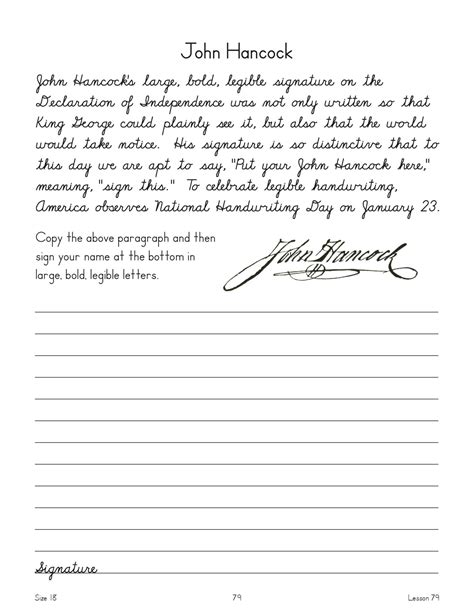 John Hancock
John Hancock's large, bold, legible signature on the
Declaration of Independence was not only written so that
King George could plainly see it, but also that the world
would take notice. His signature is so distinctive that to
this day we are apt to say, "Put your John Hancock here,"
meaning, "sign this." To celebrate legible handwriting,
America observes National Handwriting Day on January 23.
Copy the above paragraph and then
sign your name at the bottom in
large, bold, legible letters.
John Hancock
Signature
Size 18 79 Lesson 79